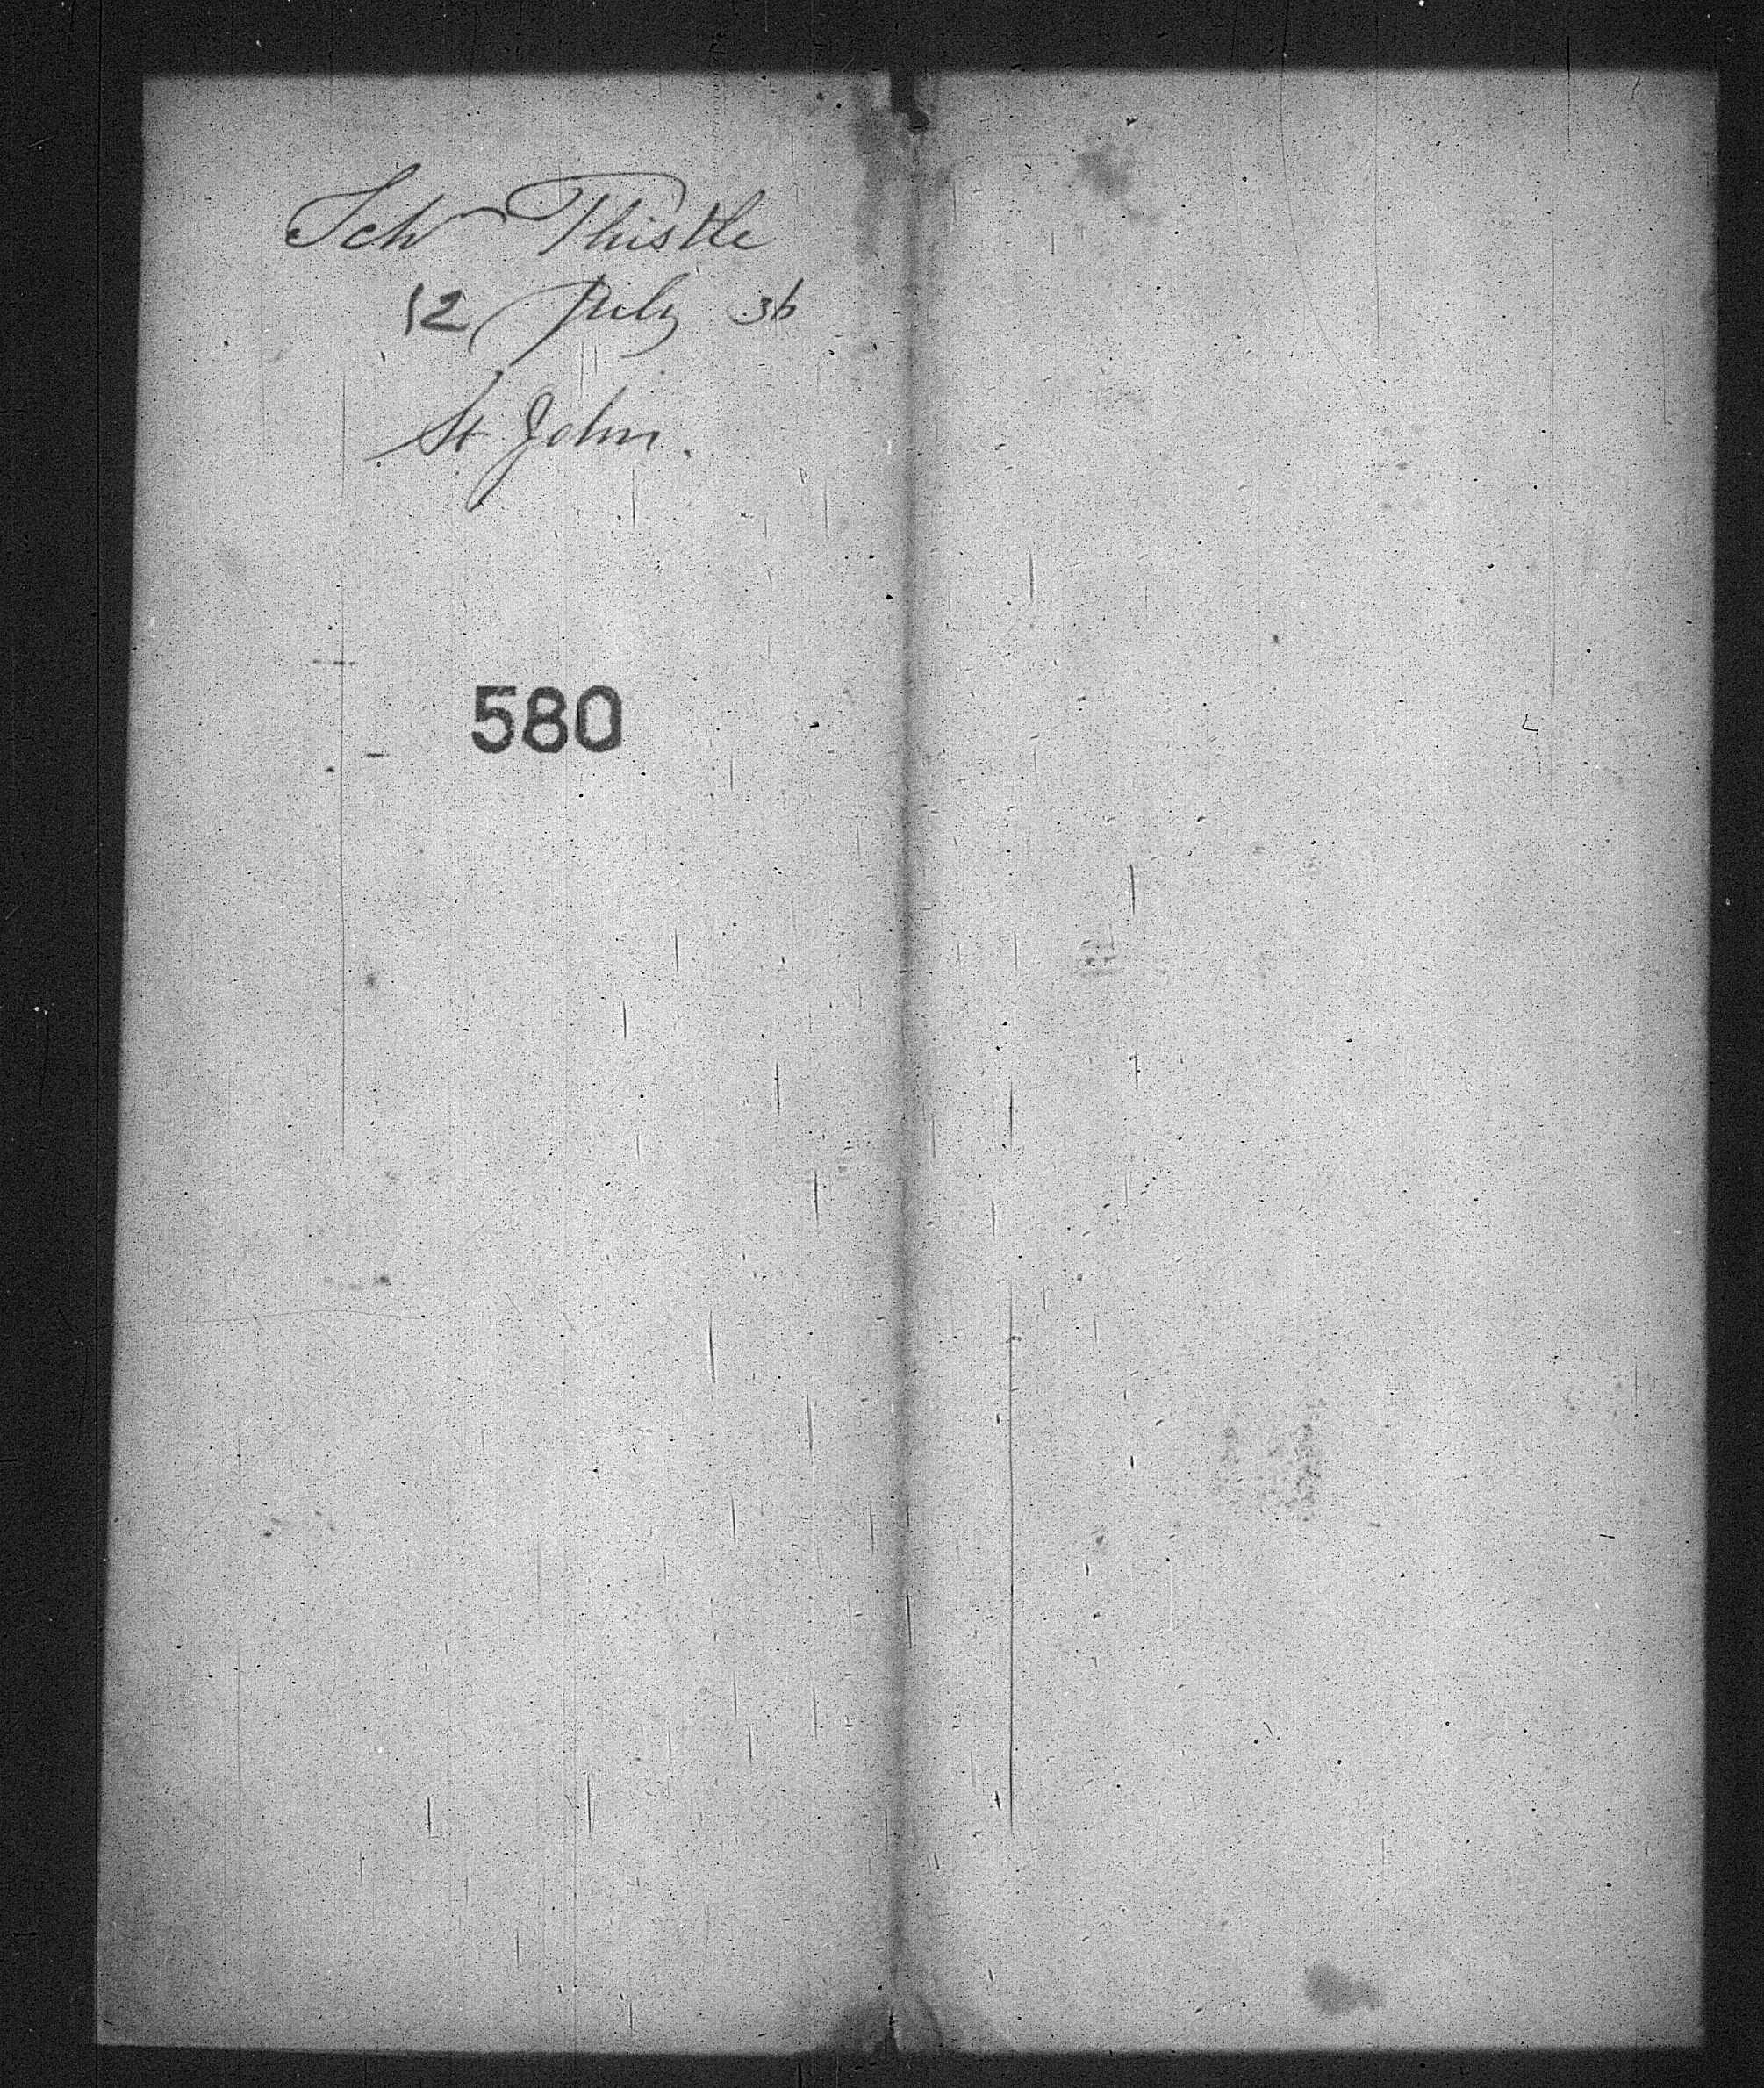 Schr Thistle
12 July 36
St John.
580